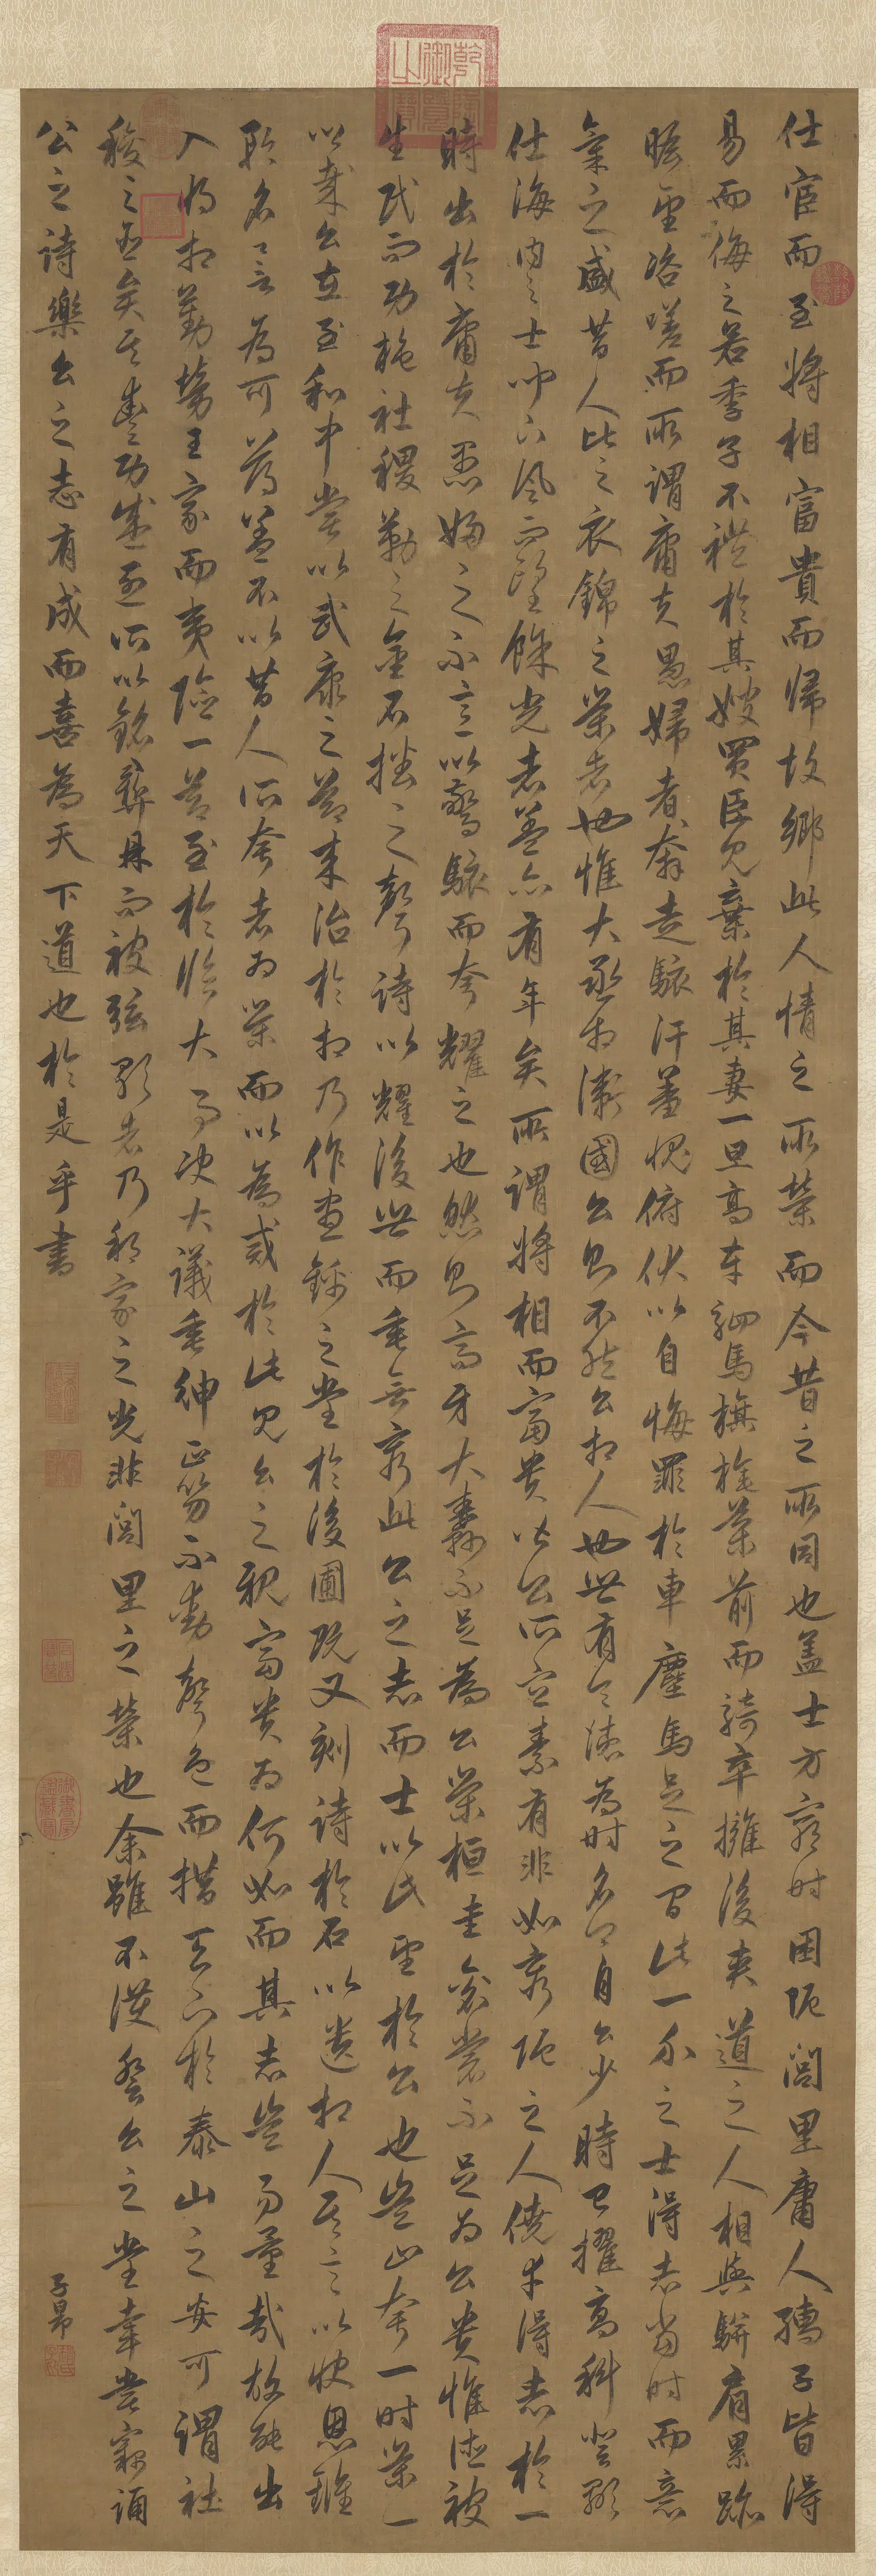 仕宦而至將相富貴而歸故鄉此人情之所榮而今昔之所同也盖士方窮時困阨閭里庸人孺子皆得
易而侮之若季子不禮於其嫂買臣見棄於其妻一旦高車駟馬旗旄導前而騎卒擁後夾道之人相與駢肩累跡
瞻望咨嗟而所謂庸夫愚婦者奔走駭汗羞愧俯伏以自悔罪於車塵馬足之間此一介之士得志當時而意
氣之盛昔人比之衣錦之榮者也惟大丞相衛國公則不然公相人也世有令德為時名卿自公少時已擢高科登顯
仕海內之士聞下風而望餘光者蓋亦有年矣所謂將相而富貴皆公所宜素有非如窮阨之人僥幸得志於一
時出於庸夫愚婦之不意以驚駭而夸耀之也然則高牙大纛不足為公榮桓圭袞裳不足為公貴惟德被
生民而功施社稷勒之金石播之聲詩以耀後世而垂無窮此公之志而士以此望於公也豈止夸一時榮一
以哉公在至和中嘗以武康之節來治於相乃作晝錦之堂於後圃既又刻詩於石以遺相人其言以快恩讎
耿名譽為可薄蓋不以昔人所夸者為榮而以為戒於此見公之視富貴為何如而其志豈易量哉故能出
入將相勤勞王家而夷險一節至於臨大事決大議垂紳正笏不動聲色而措天下於泰山之安可謂社
稷之臣矣其豐功盛烈所以銘彝鼎而被弦歌者乃邦家之光非閭里之榮也余雖不獲登公之堂幸嘗竊誦
公之詩樂公之志有成而喜為天下道也於是乎書
子昂
乾隆御覽之寶